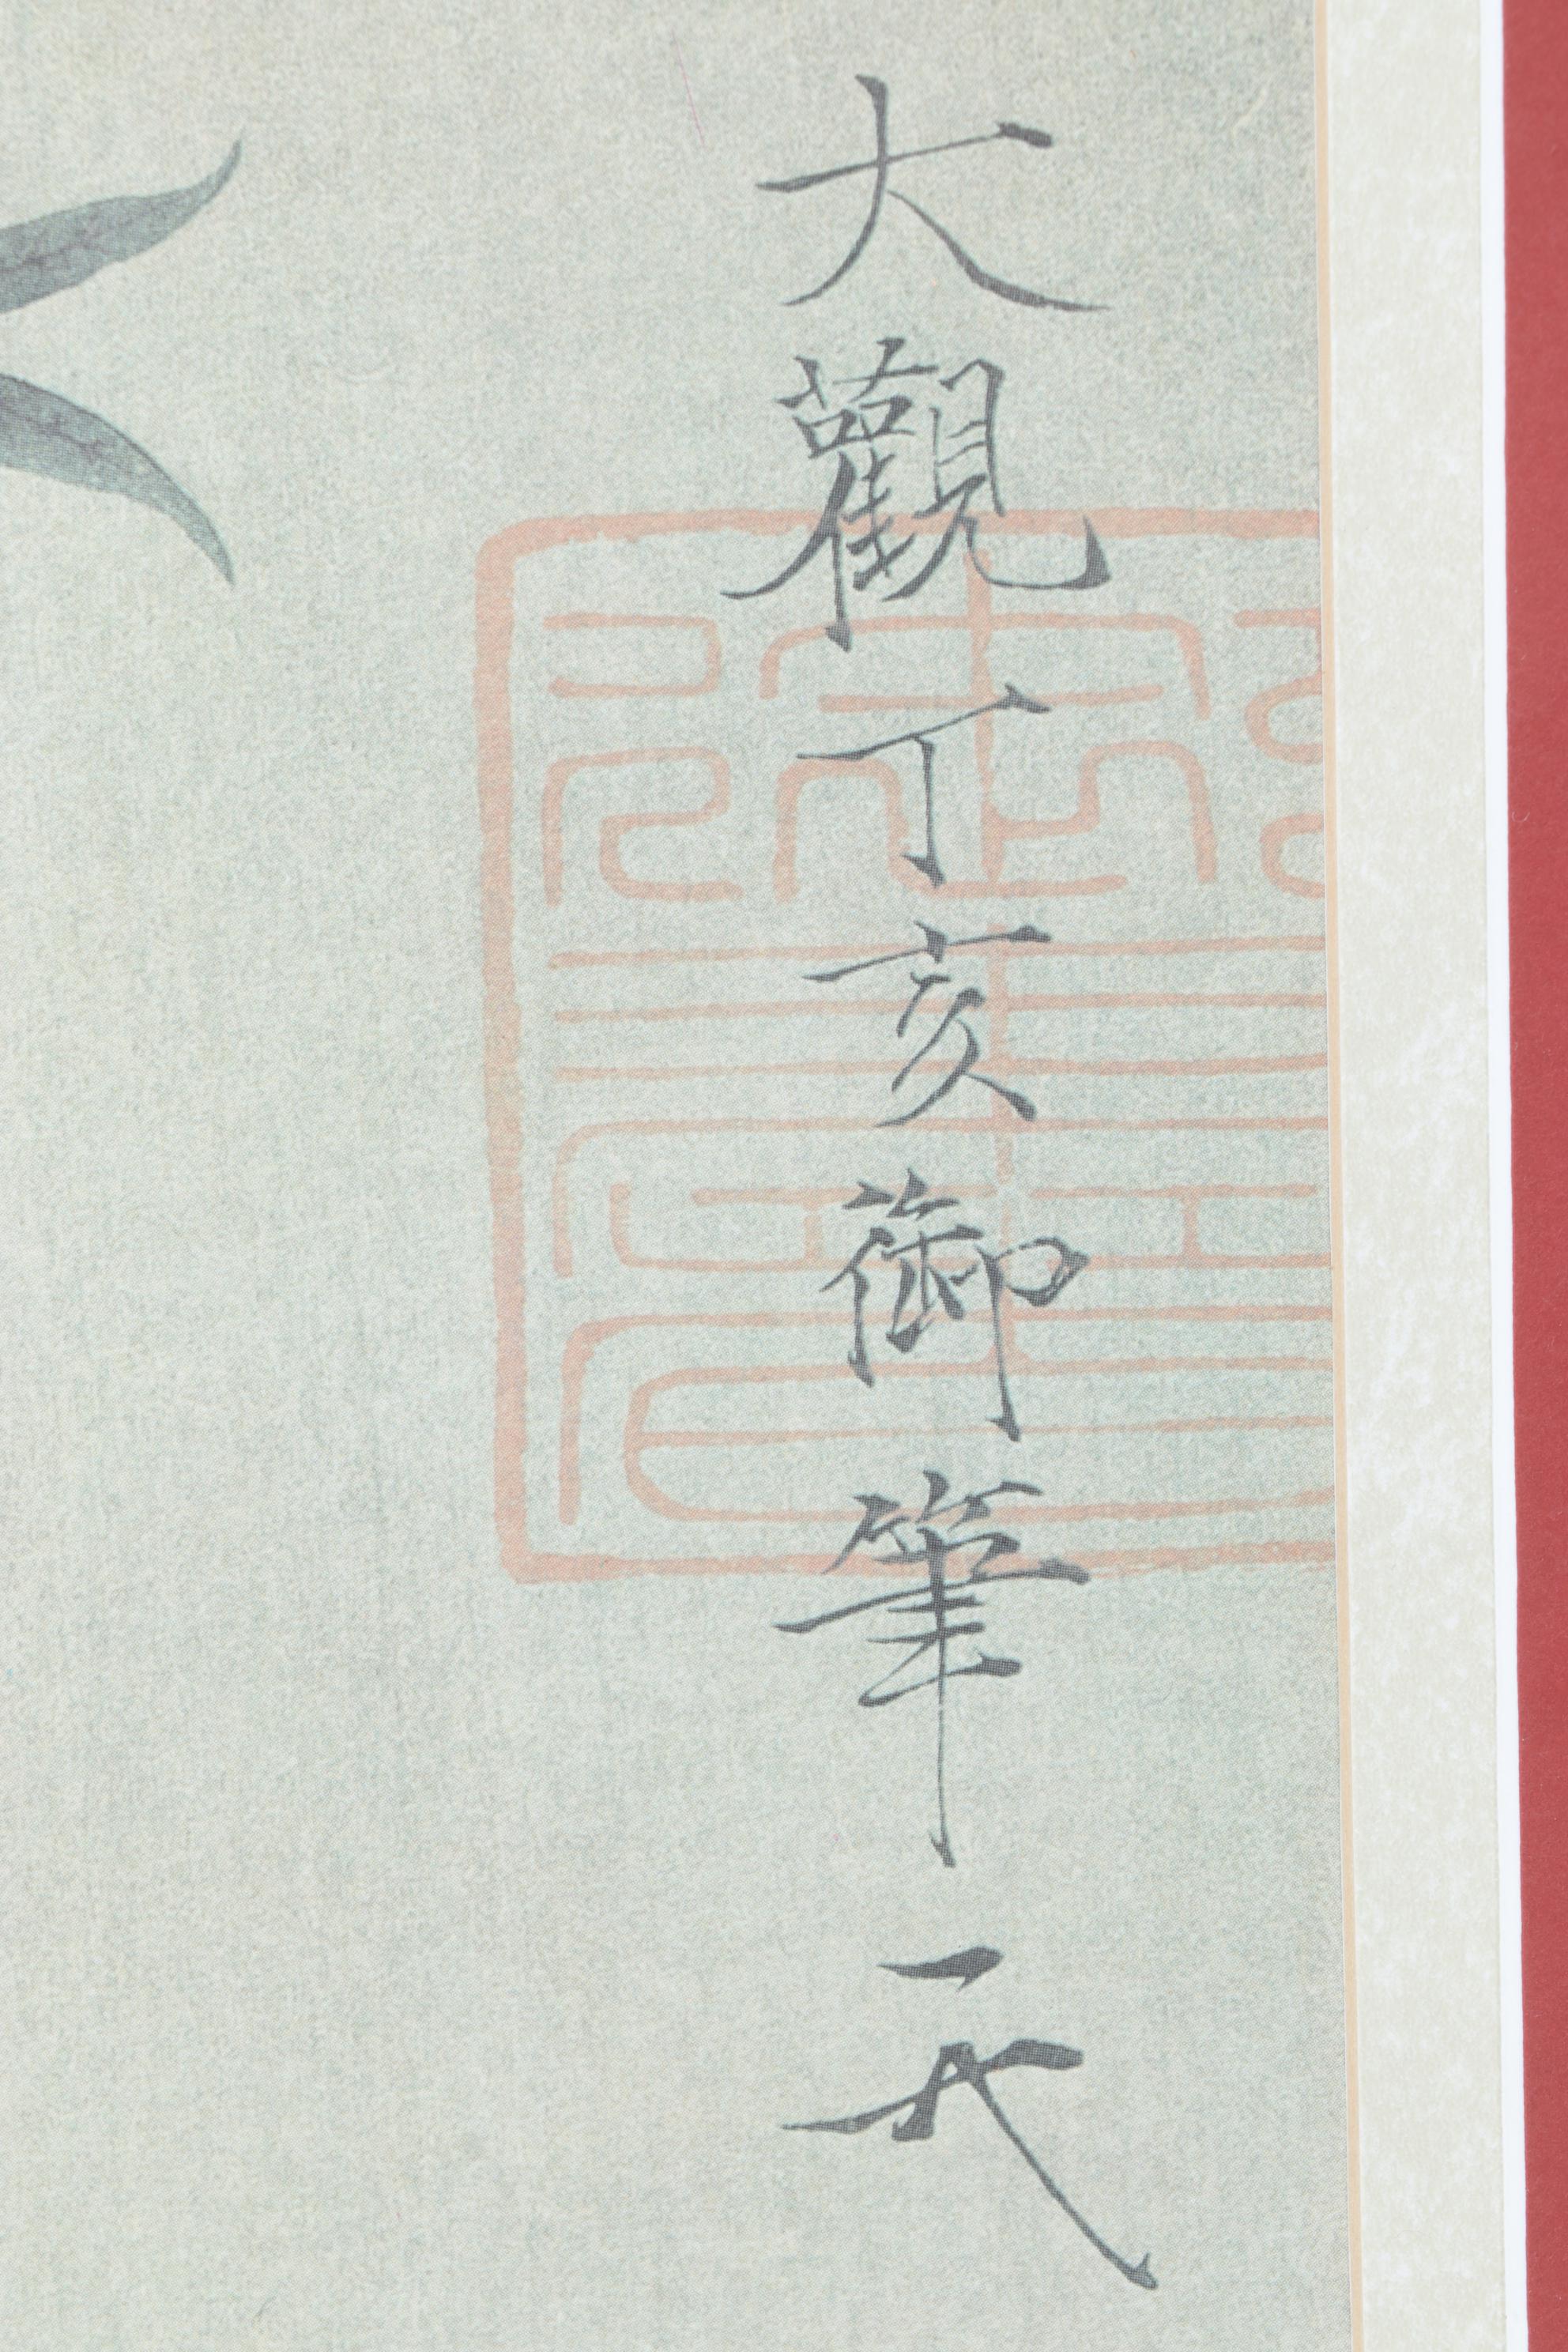 大觀丁亥御筆